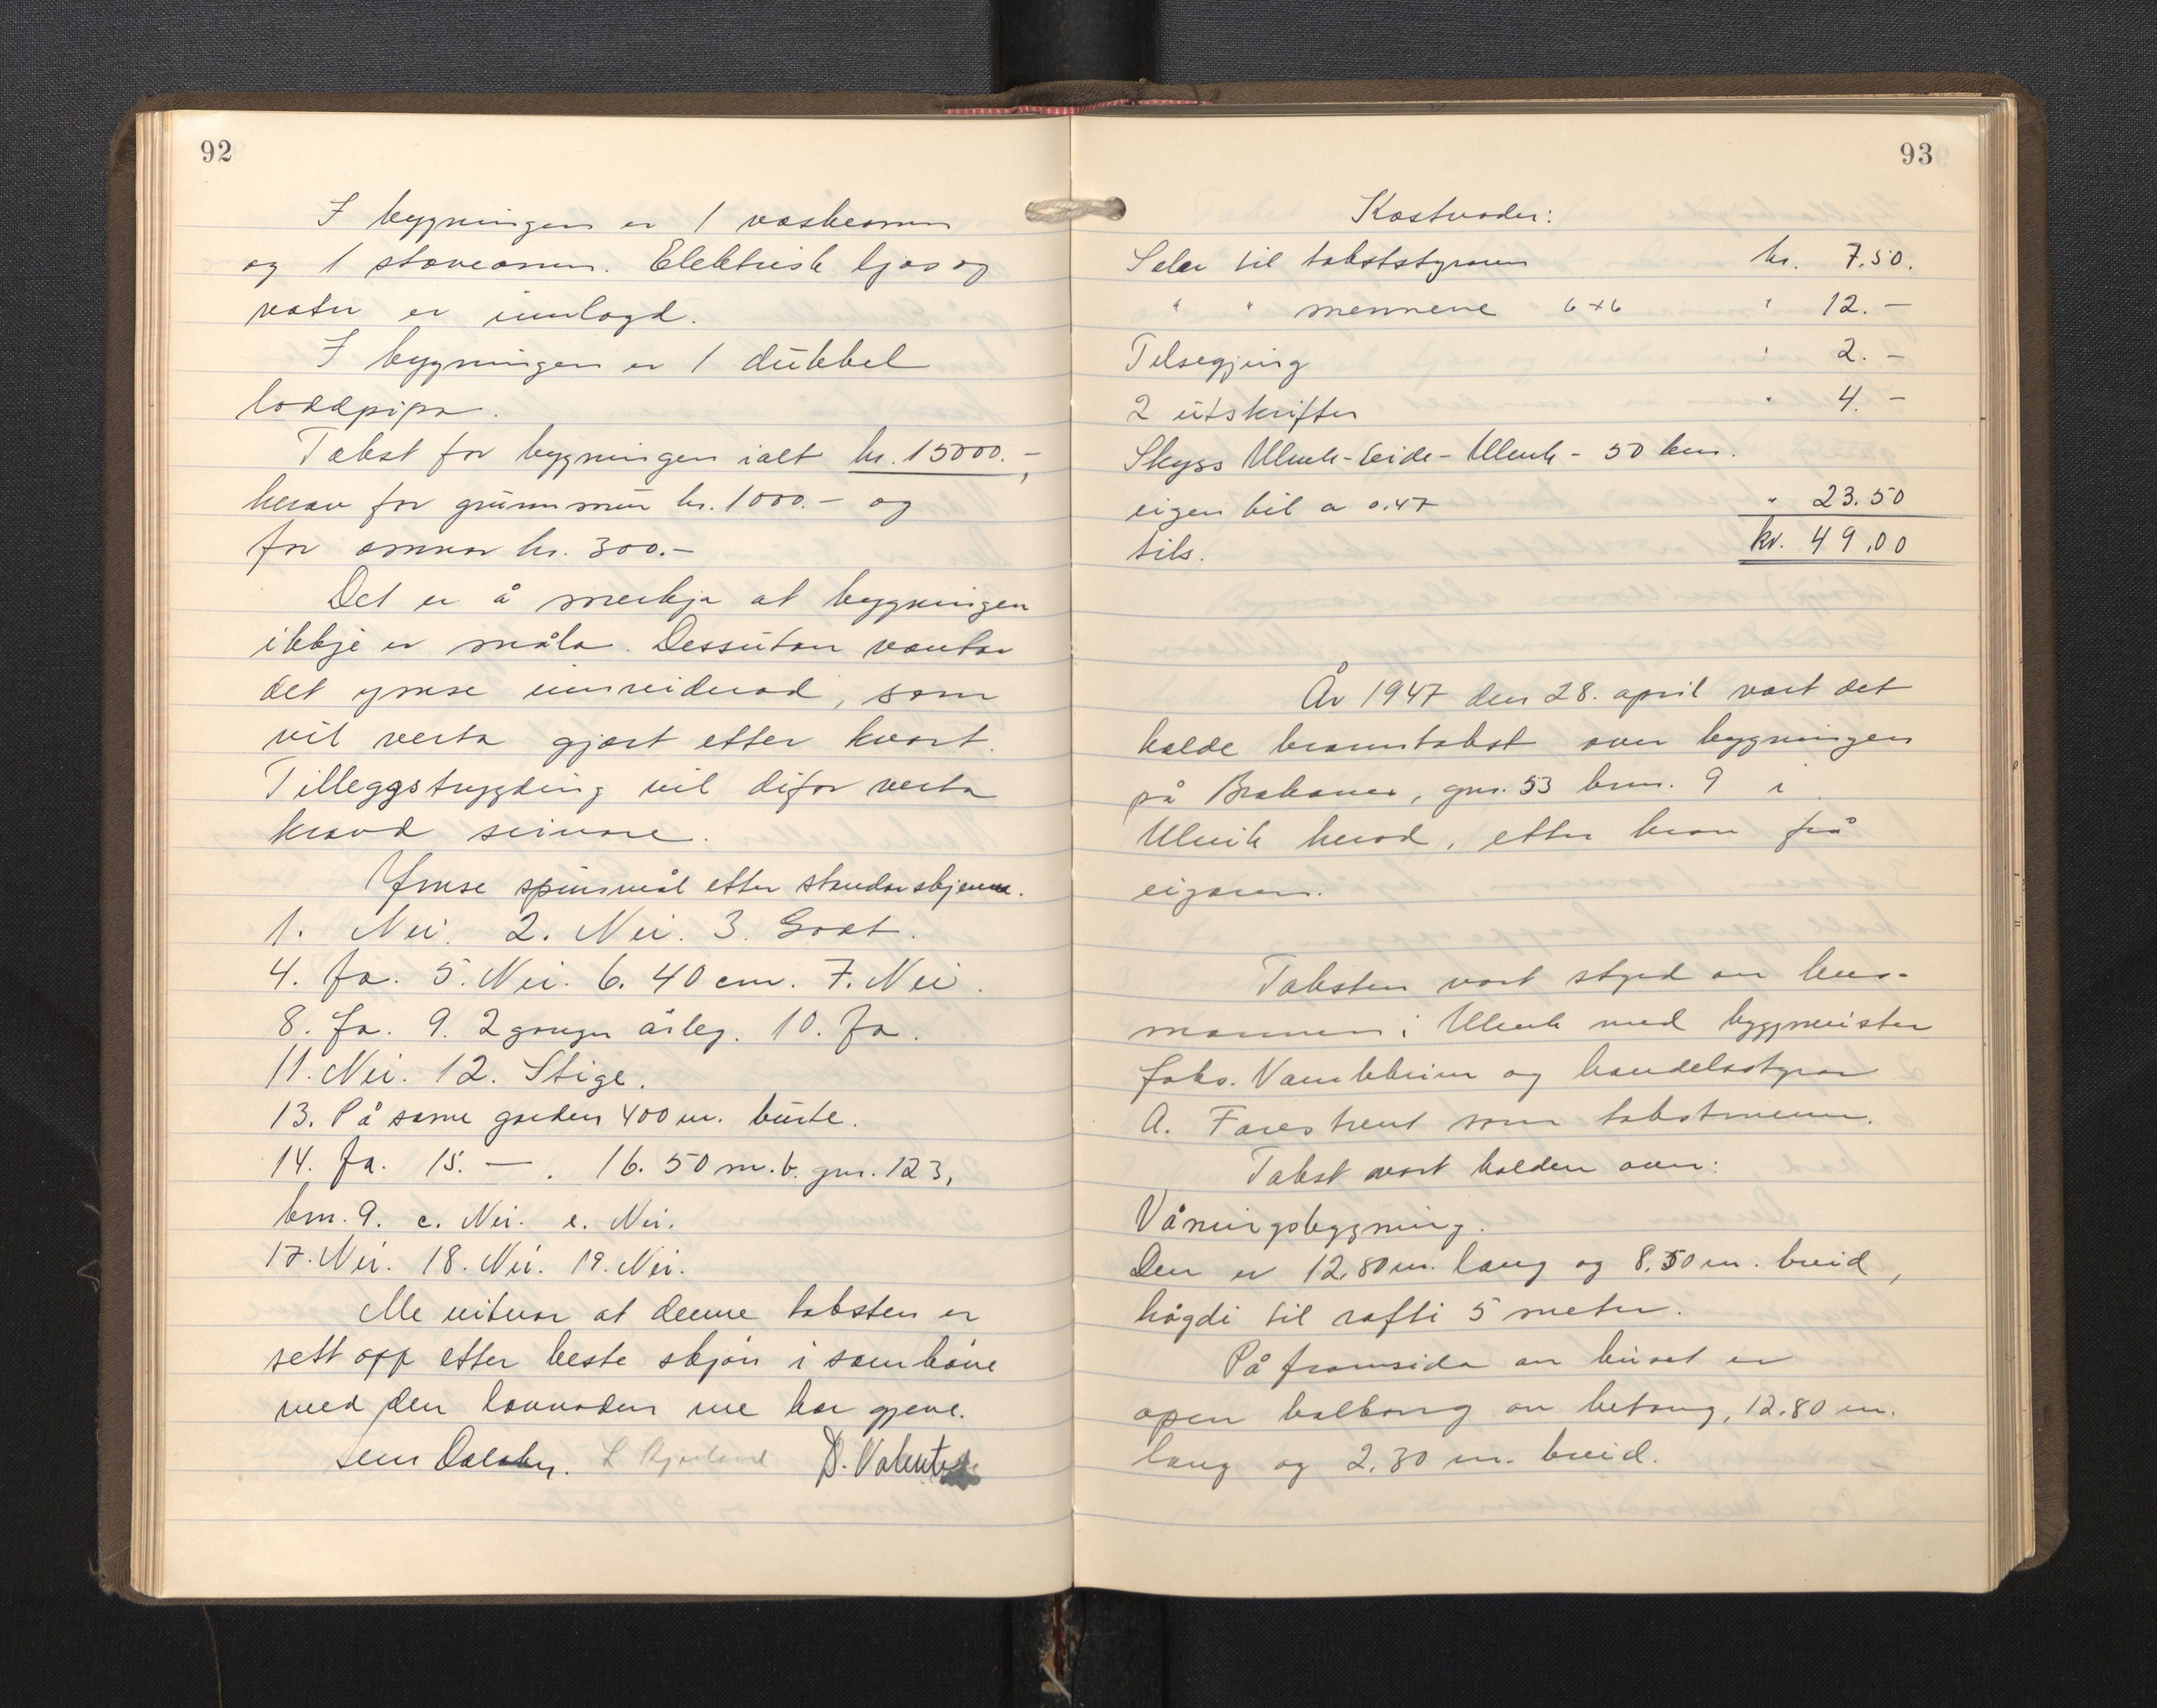 92
I bygningen er 1 vaskeomn
og 1 stoveomn. Elektrisk ljos og
vatn er innlagd.
I bygningen er 1 dubbel
loddpipa.
Takst for bygningen ialt kr. 15000.-,
herav for grunnmur kr. 1000.- og
for omnar kr. 300.-
Det er å merkja at bygningen
ikkje er måla. Dessutan vantar
det ymse innreidnad, som
vil verta gjort etter kvart.
Tilleggstrygding vil difor verta
kravd seinare.
Ymse spursmål etter standarskjema.
1. Nei. 2. Nei. 3. Godt.
4. Ja. 5. Nei. 6. 40 cm. 7. Nei.
8. Ja. 9. 2 gonger årleg. 10. Ja.
11. Nei. 12. Stige.
13. På same garden 400 m. burte.
14. Ja. 15. — . 16. 50 m. b. gnr. 123,
bnr. 9. c. Nei. e. Nei.
17. Nei. 18. Nei. 19. Nei.
Me vitnar at denne taksten er
sett opp etter beste skjøn i samhøve
med den lovnaden me har gjeve.
D.
93
Kostnader:
Salær til takststyraren kr. 7.50.
" " mennene 6+6 " 12.-
Tilsegjing " 2.-
2 utskrifter " 4.-
Skyss Ulvik-Eide-Ulvik - 50 km.
eigen bil a 0.47 " 23.50
tils. kr. 49.00
År 1947 den 28. april vart det
halde branntakst over bygningen
på Brakanes, gnr. 53 bnr. 9 i
Ulvik herad, etter krav frå
eigaren.
Taksten vart styrd av lens-
mannen i Ulvik med byggmeister
Joks. Vambheim og handelsstyrar
A. Farestveit som takstmenn.
Takst vart halden over:
Våningsbygning.
Den er 12,80 m. lang og 8.50 m. breid,
høgdi til rafti 5 meter.
På framsida av huset er
open balkong av betong, 12.80 m.
lang og 2.30 m. breid.